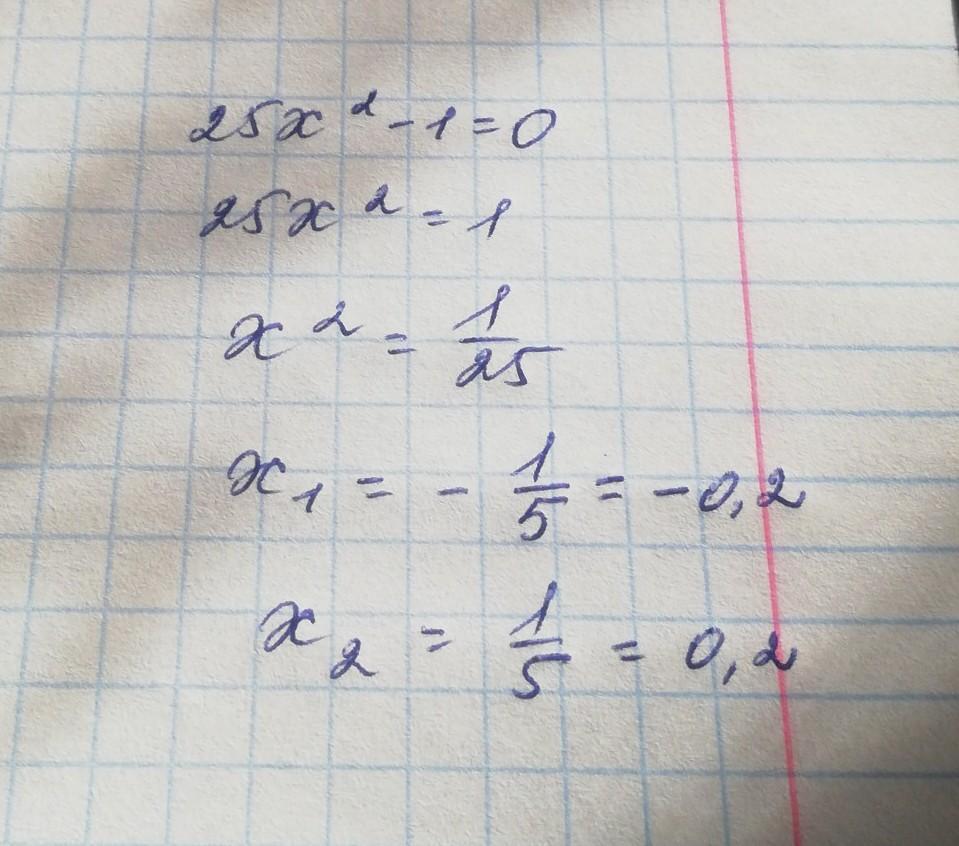 25x² - 1 = 0
25x² = 1
x² = 1/25
x₁ = - 1/5 = -0,2
x₂ = 1/5 = 0,2